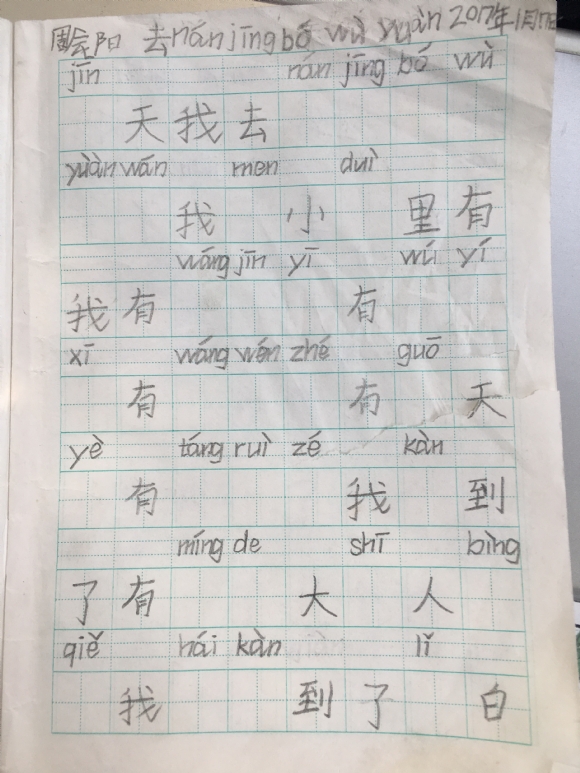 阳 去nán jīng bó wù yuàn 2017年1月
jīn nán jīng bó wù
天我去
yuàn wán men duì
我 小 里有
wáng jīn yī wú yí
我有 有
xī wáng wén zhé guō
有 有 天
yè táng ruì zé kàn
有 我 到
míng de shī bìng
了有 大 人
qiě hái kàn lǐ
我 到了 白